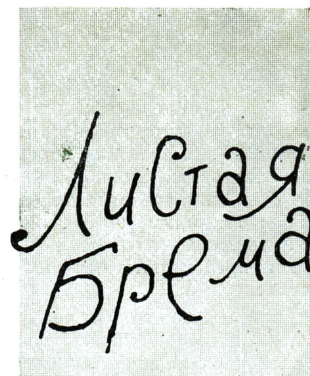 Листая
Брема